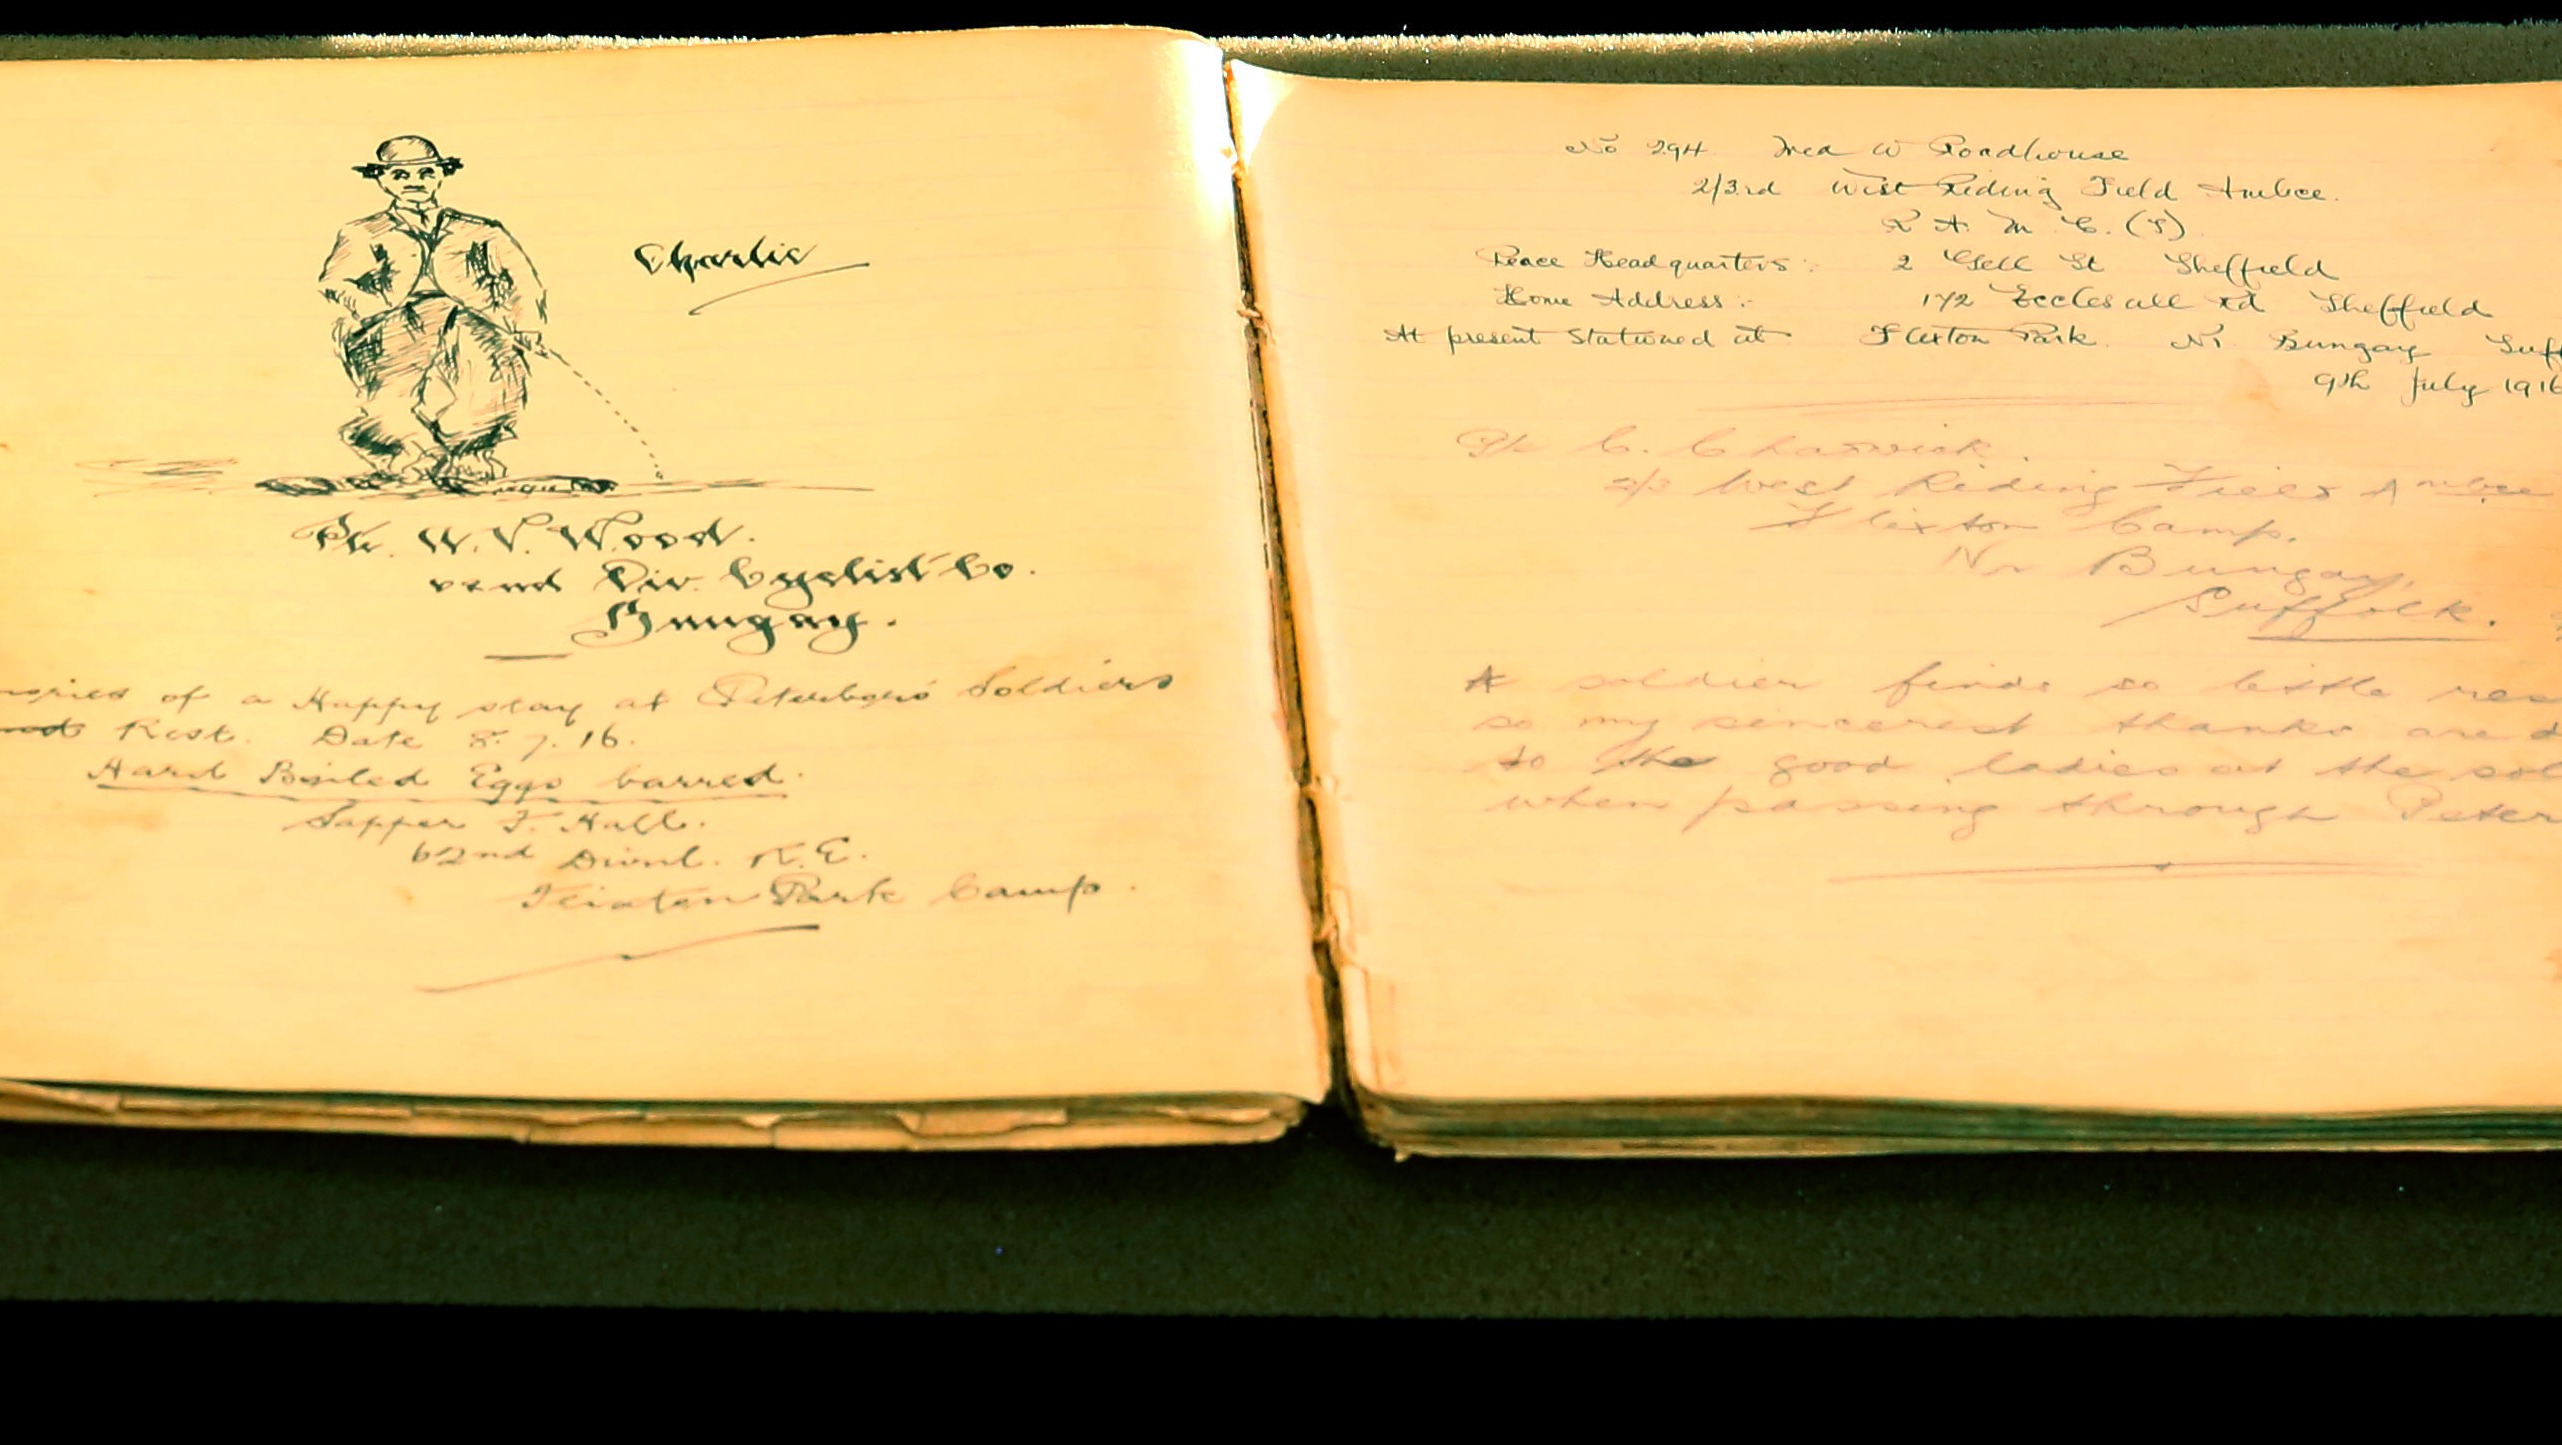 Charlie
Pte. W. V. Wood.
62nd Div. Cyclist Co.
Bungay.
of a Happy stay at Peterboro' Soldiers
Rest. Date 8.7.16.
Hard Boiled Eggs barred.
Sapper F. Hall.
62nd Divnl. R.E.
Flixton Park Camp.
No 294 Fred W Roadhouse
2/3rd West Riding Field Ambce.
R A M C. (T)
Peace Headquarters :- 2 Gell St Sheffield
Home Address :- 172 Ecclesall Rd Sheffield
At present stationed at Flixton Park. Nr Bungay Suff
9th July 1916
Pte C. Chadwick.
2/3 West Riding Field Ambce
Flixton Camp.
Nr Bungay,
Suffolk.
A soldier finds so little res
so my sincerest thanks are d
to the good ladies at the sol
when passing through Peter